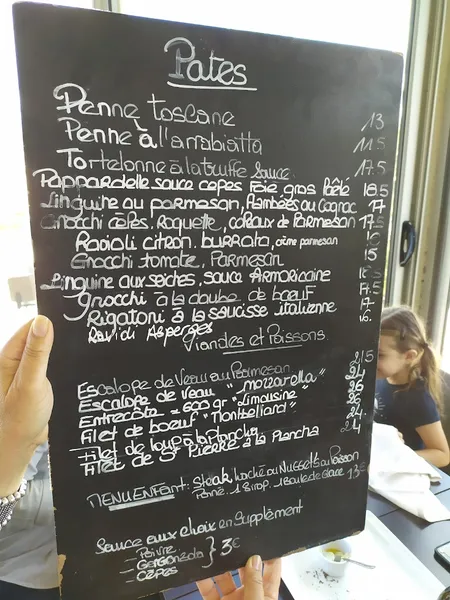 Pates
Penne toscane 13
Penne à l'arrabiatta 11.5
Tortelonne à la truffe sauce 17.5
Pappardelle sauce cèpes Foie gras Poêlé 18.5
Linguine au parmesan, Flambées au Cognac 17
Gnocchi cèpes, Roquette, copeaux de Parmesan 17.5
Ravioli citron, burrata, crème parmesan
Gnocchi tomate, Parmesan 15
Linguine aux seiches, sauce Armoricaine
Gnocchi à la daube de bœuf 17.5
Rigatoni à la saucisse italienne 17
Ravioli Asperges 16.
Viandes et Poissons.
Escalope de Veau au Parmesan 21.5
Escalope de veau "mozzarella" 24
Entrecôte gr "Limousine" 26
Filet de boeuf "Montbeliard" 26
Filet de loup à la plancha 24.
Filet de St Pierre à la Plancha 24
MENU ENFANT: Steak haché ou Nuggets ou Poisson
Penne. 1 Sirop. 1 Boule de Glace
Sauce aux choix en Supplément
- Poivre
- Gorgonzola } 3€
- Cèpes